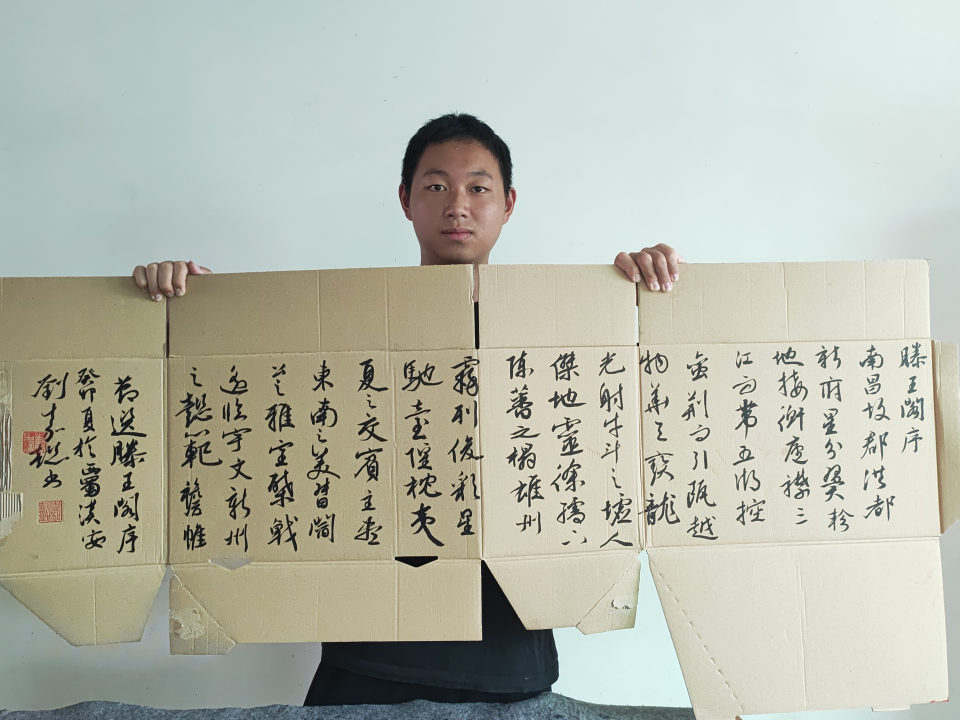 滕王閣序
南昌故郡洪都
新府星分翼軫
地接衡廬襟三
江而帶五湖控
蠻荆而引甌越
物華天寶龍
光射牛斗之墟人
傑地靈徐孺下
陳蕃之榻雄州
霧列俊彩星
馳臺隍枕夷
夏之交賓主盡
東南之美督閻
公之雅望棨戟
遙臨宇文新州
之懿範襜帷
節選滕王閣序
癸卯夏於蜀漢安
劉嘉書